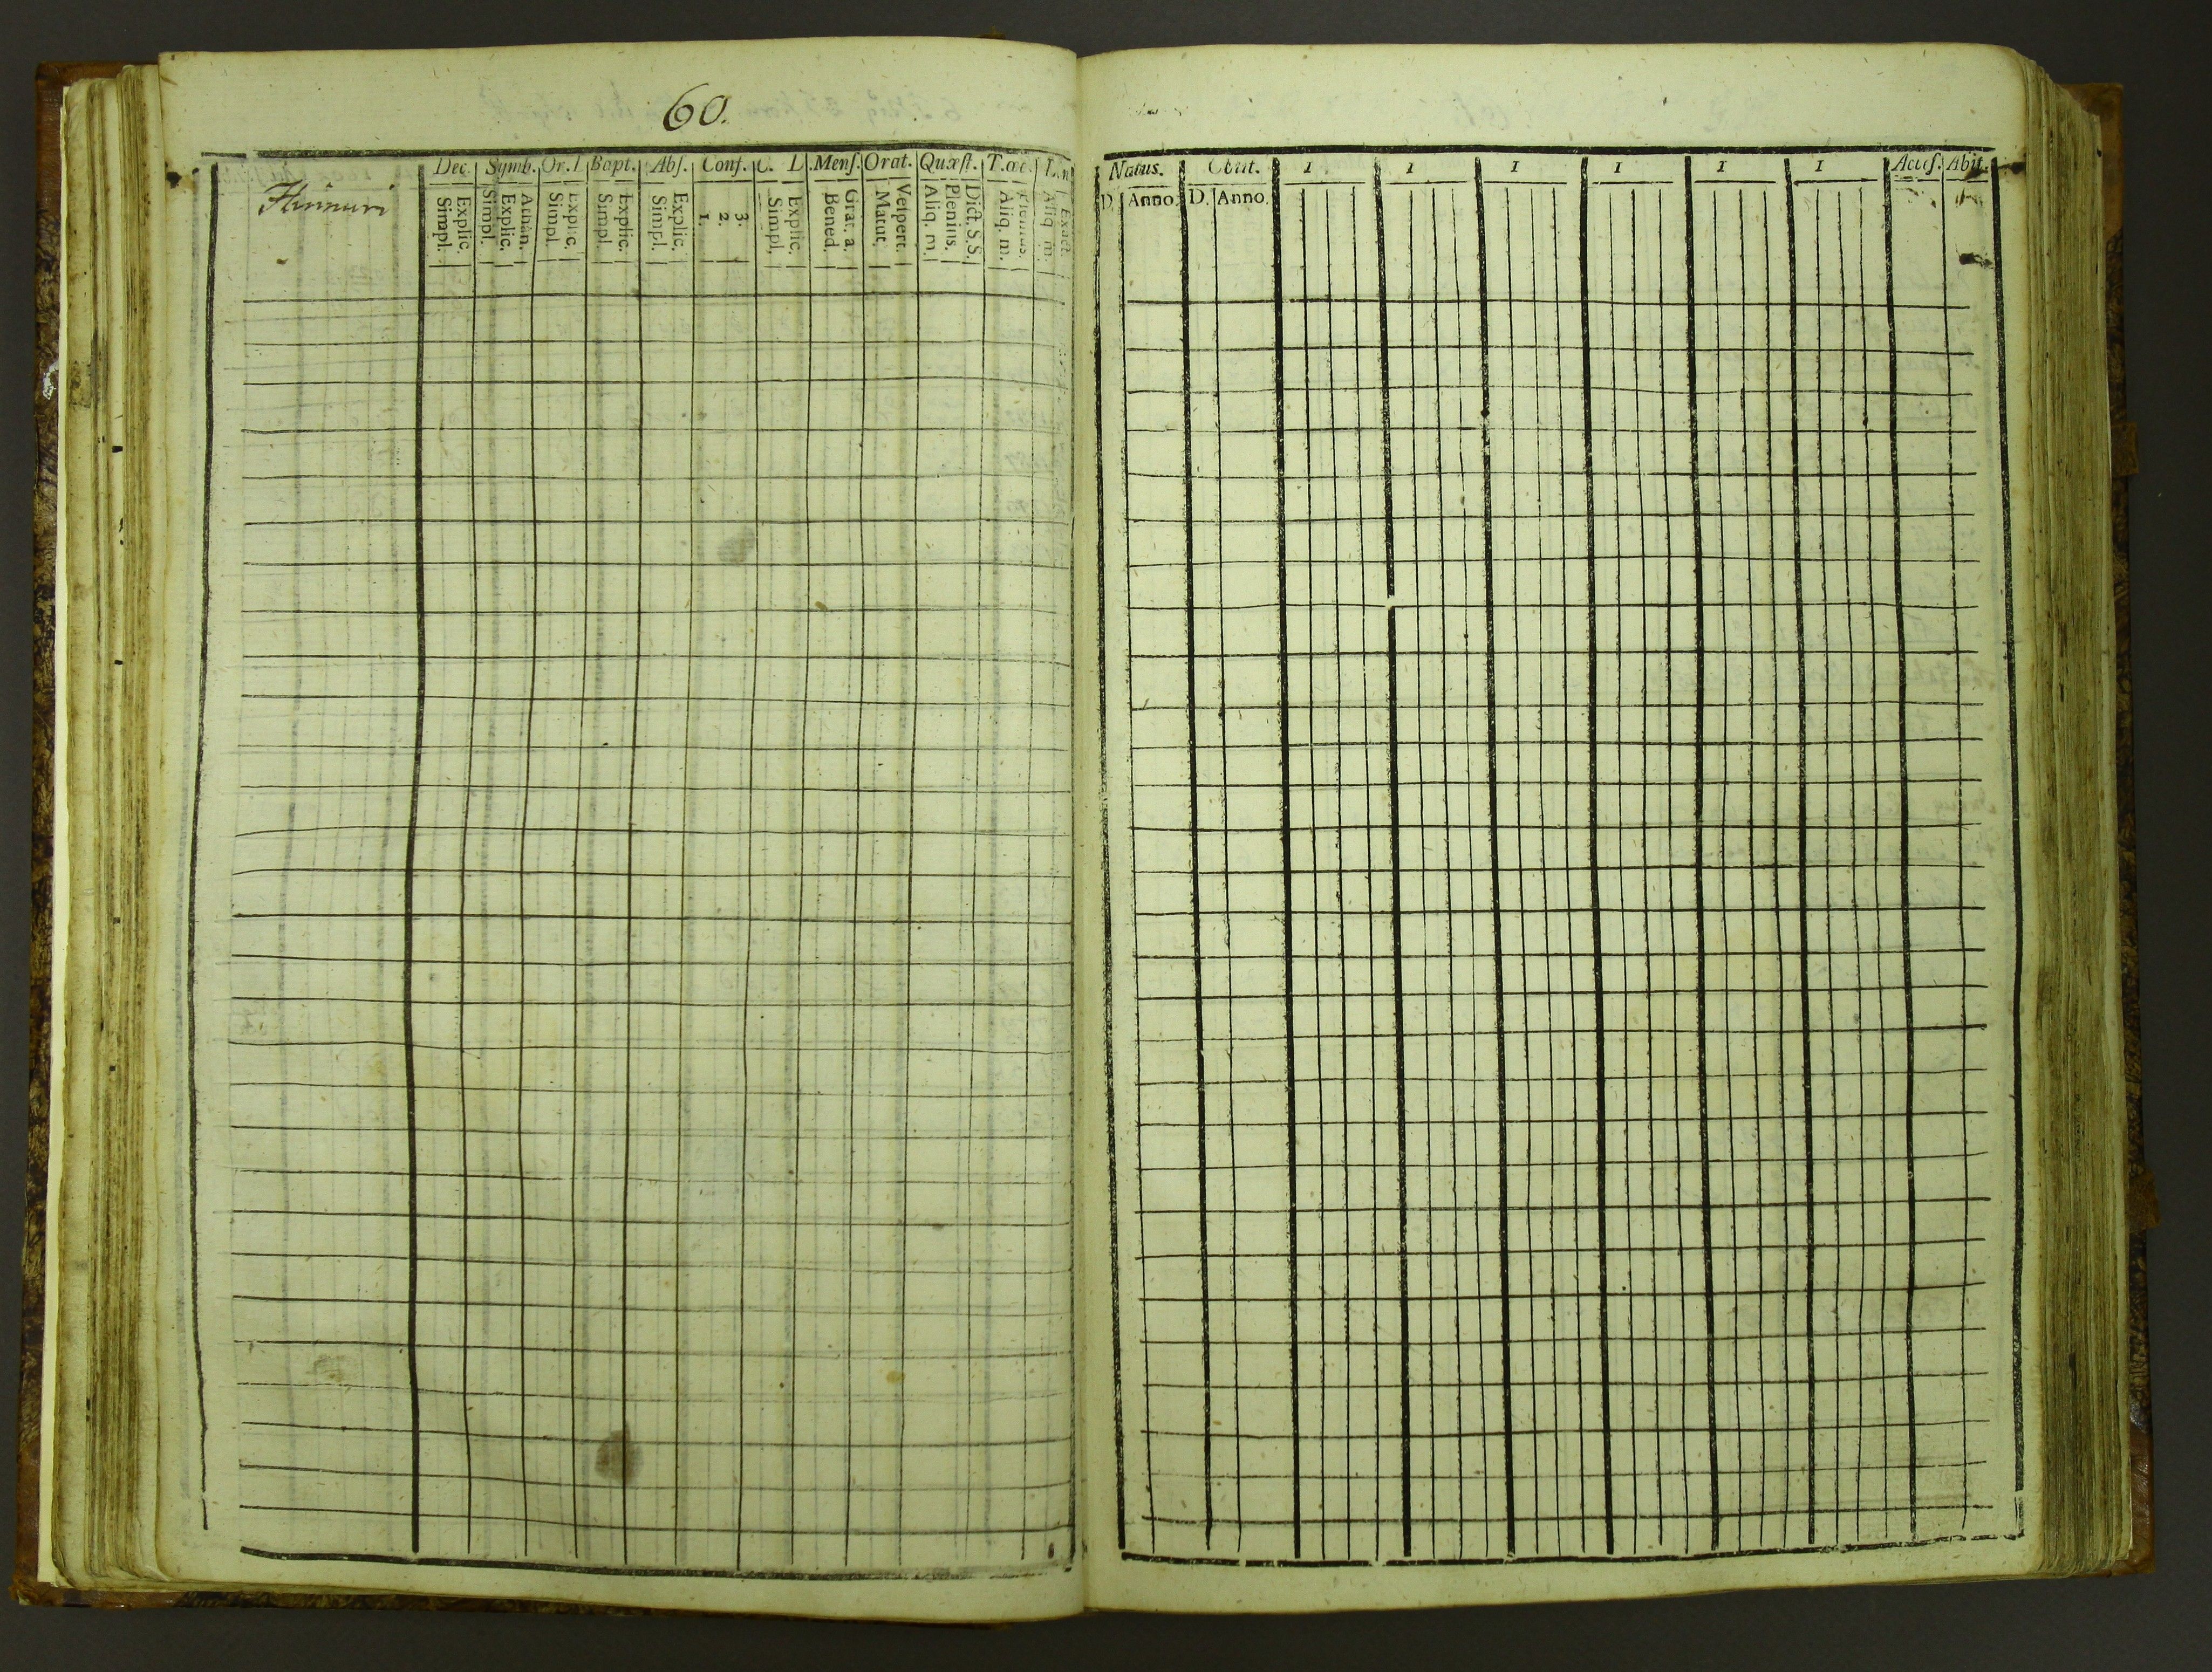 60.
Dec. Symb. Or. D Bapt. Abs. Conf. C. D. Mens. Orat. Quæst. T. œc.
Hirmuri
Simpl. Explic. Simpl. Explic. Athan. Simpl. Explic. Simpl. Explic. Simpl. Explic. 1. 2. 3. Simpl. Explic. Bened. Grat. a. Matut. Vespert. Aliq. m. Plenius. Dict. S. S. Aliq. m. Plenius. Aliq. m. Exact.
Natus. Obiit. 1 1 1 1 1 1 Access. Abiit.
D. Anno. D. Anno.